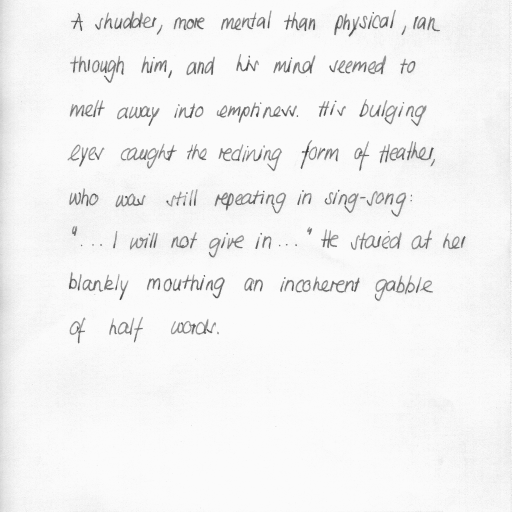 A shudder, more mental than physical, ran
through him, and his mind seemed to
melt away into emptiness. His bulging
eyes caught the reclining form of Heather,
who was still repeating in sing-song:
"... I will not give in ..." He stared at her
blankly mouthing an incoherent gabble
of half words.